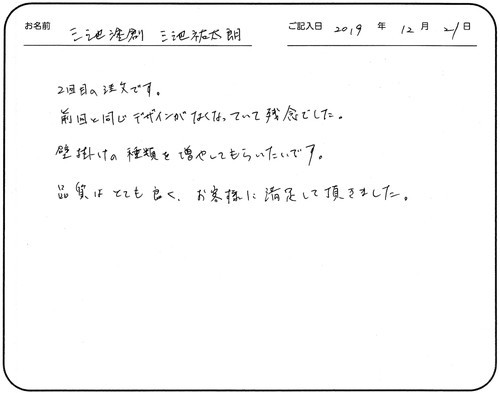 お名前 三池塗創 三池祐太朗 ご記入日 2019 年 12 月 21 日
2回目の注文です。
前回と同じデザインがなくなっていて残念でした。
壁掛けの種類を増やしてもらいたいです。
品質はとても良く、お客様に満足して頂きました。